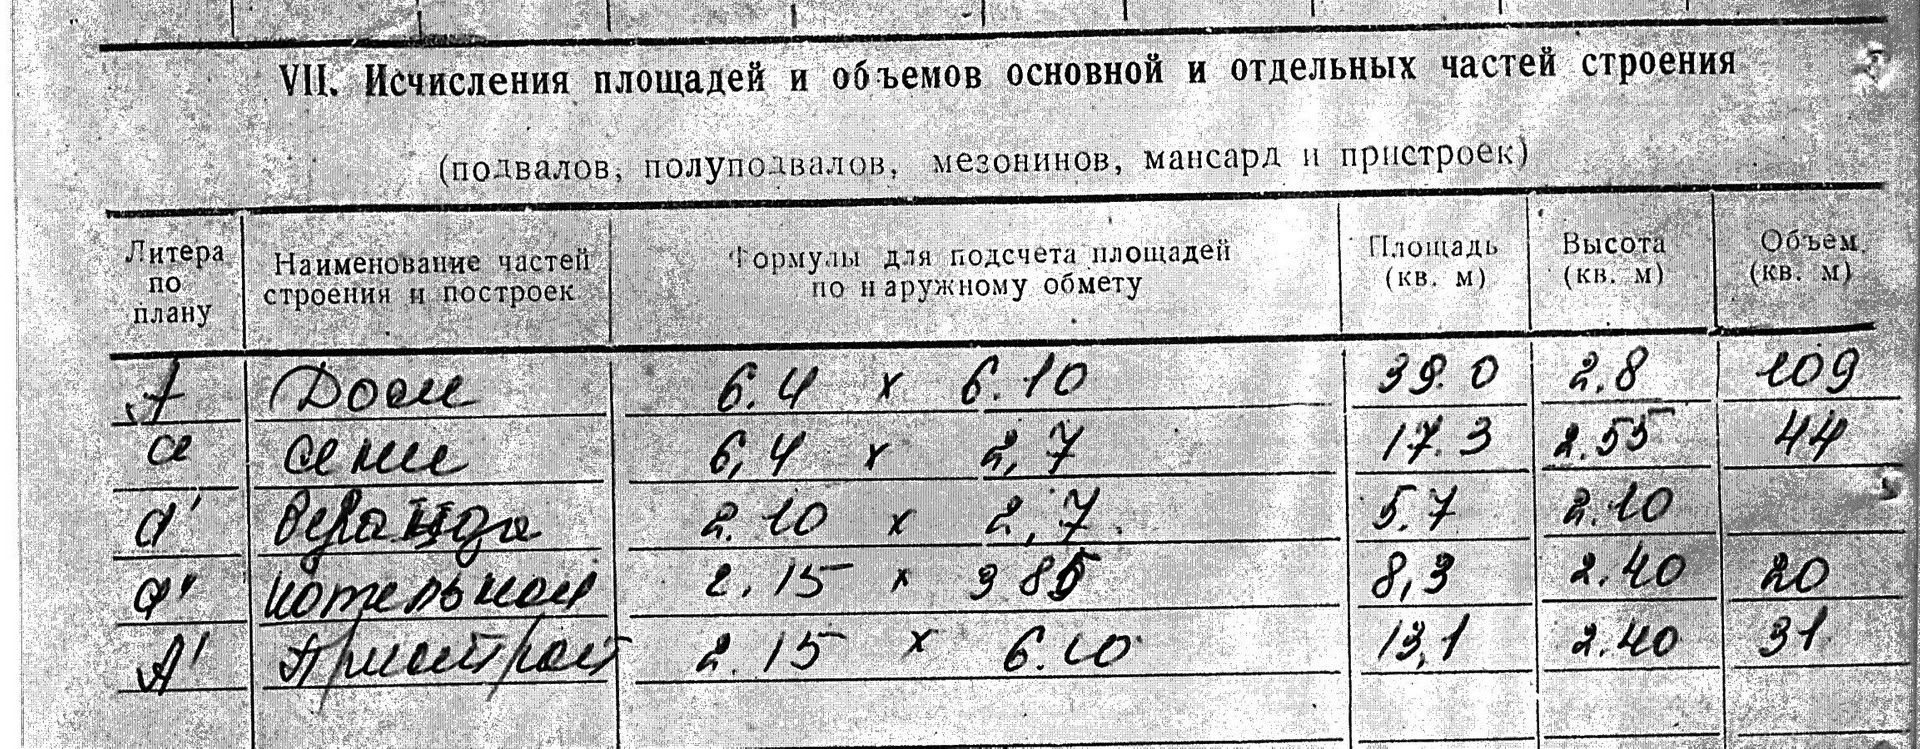 VII. Исчисления площадей и объемов основной и отдельных частей строения
(подвалов, полуподвалов, мезонинов, мансард и пристроек)
Литера по плану Наименование частей строения и построек Формулы для подсчета площадей по наружному обмету Площадь (кв. м) Высота (кв. м) Объем. (кв. м)
А Дом 6.4 x 6.10 39.0 2.8 109
а сени 6,4 x 2,7 17.3 2.55 44
а' веранда 2.10 x 2,7 5.7 2.10
а" котельная 2.15 x 3 85 8,3 2.40 20
А' Пристрой 2.15 x 6.10 13,1 2.40 31